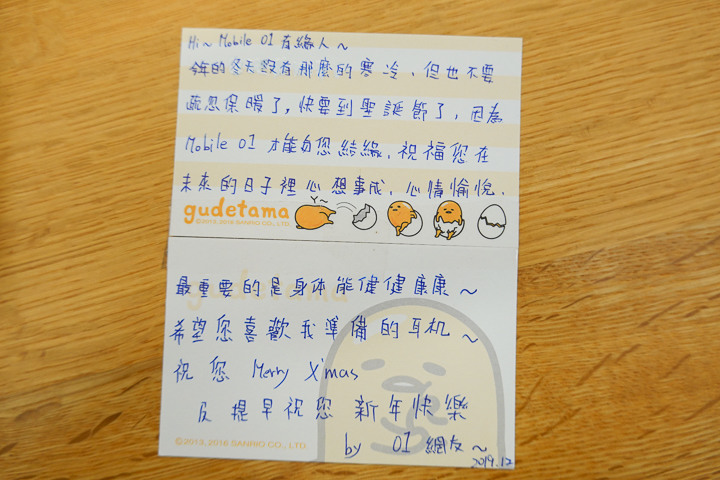 Hi~ Mobile 01 有緣人~
今年的冬天沒有那麼的寒冷、但也不要
疏忽保暖了,快要到聖誕節了,因為
Mobile 01 才能与您結緣、祝福您在
未來的日子裡心想事成、心情愉悅、
gudetama
©2013, 2016 SANRIO CO., LTD.
最重要的是身体能健健康康~
希望您喜歡我準備的耳机~
祝您 Merry X'mas
及提早祝您 新年快樂
©2013, 2016 SANRIO CO., LTD
by 01 網友~
2019.12